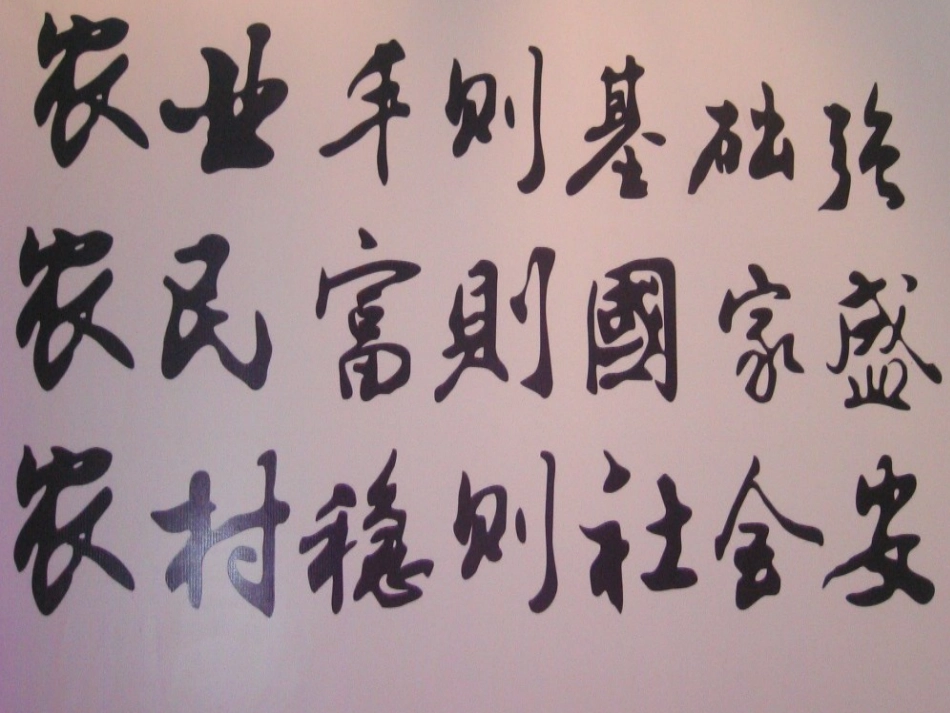 农业丰则基础强
农民富則國家盛
农村稳则社会安